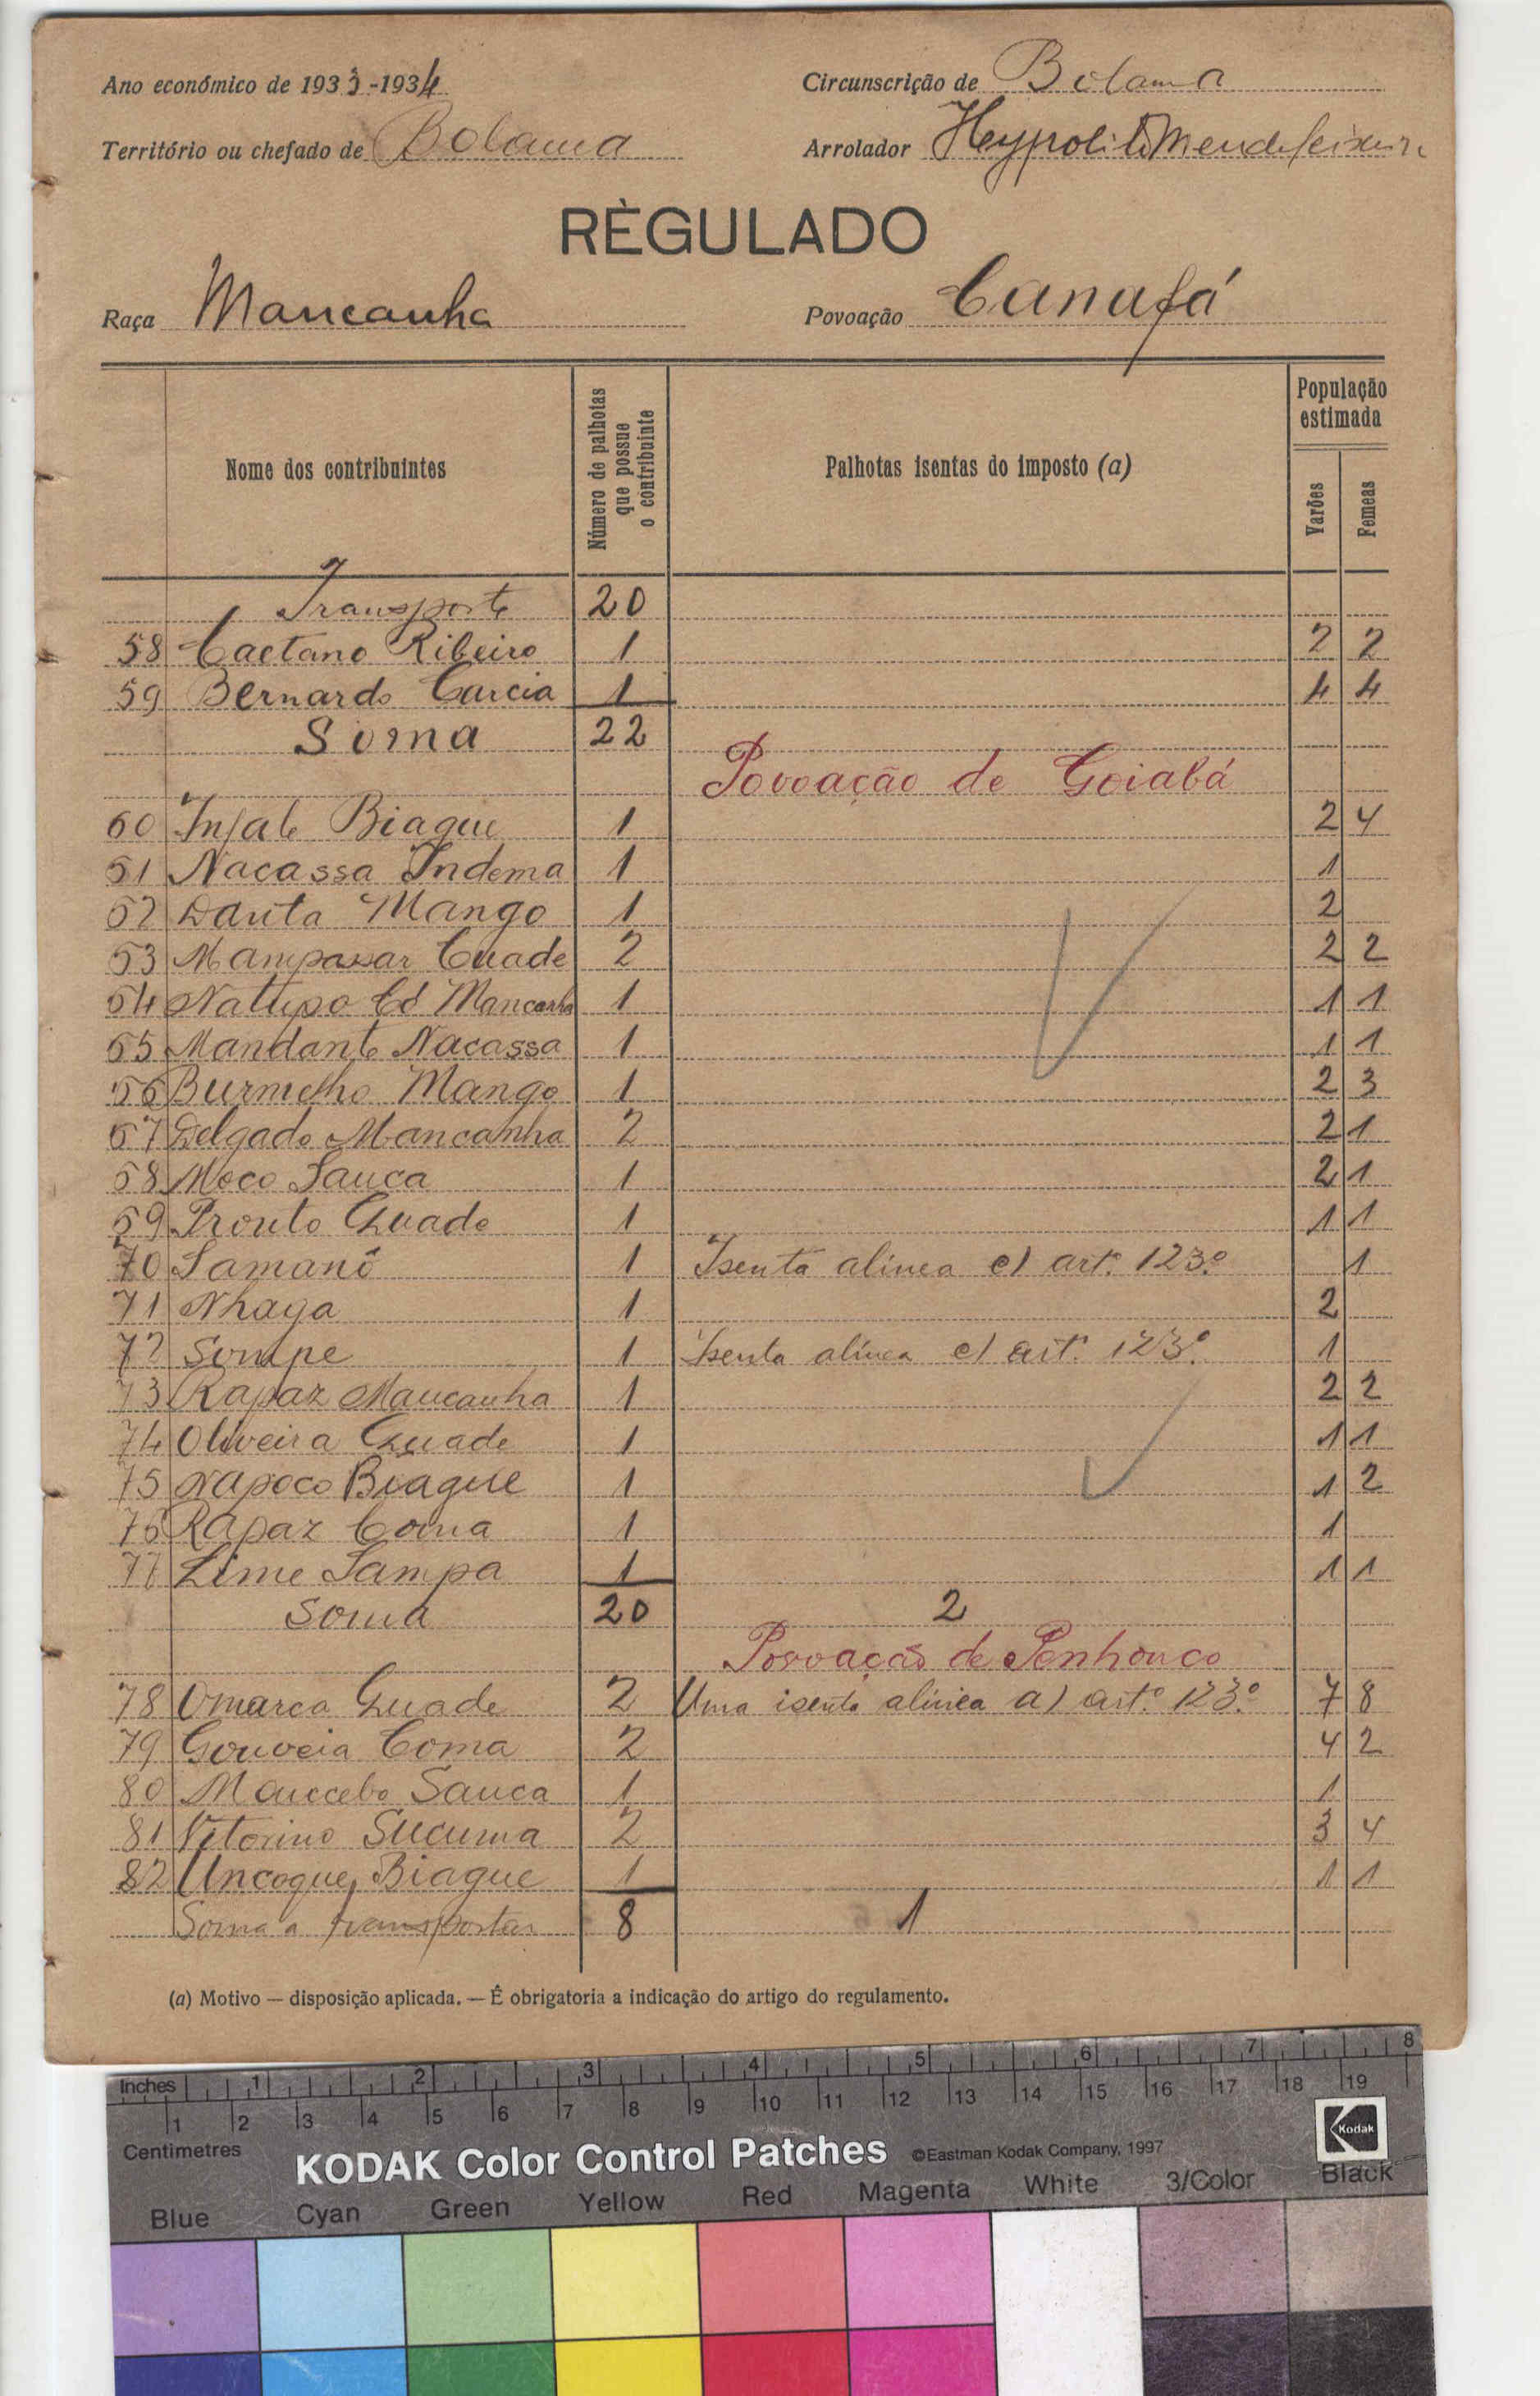 Ano económico de 1933-1934 Circunscrição de Bolama
Território ou chefado de Bolama Arrolador Heypolito Mendes
RÈGULADO
Raça Mancanha Povoação Canafá
Nome dos contribuintes Número de palhotas que possue o contribuinte Palhotas isentas do imposto (a) População estimada Varões Femeas
Transporte 20
58 Caetano Ribeiro 1 2 2
59 Bernardo Garcia 1 4 4
Soma 22
Povoação de Goiabá
60 Infale Biague 1 2 4
61 Nacassa Indema 1 1
62 Danta Mango 1 2
63 Mampassar Cuade 2 2 2
64 Natupo Có Mancanha 1 1 1
65 Mandante Nacassa 1 1 1
66 Burmelho Mango 1 2 3
67 Delgado Mancanha 2 2 1
68 Moco Sauca 1 2 1
69 Pronto Quade 1 1 1
70 Samanô 1 Isenta alinea c) art.º 123º 1
71 Nhaga 1 2
72 Sompe 1 Isenta alinea c) art.º 123º 1
73 Rapaz Mancanha 1 2 2
74 Oliveira Quade 1 1 1
75 Napoco Biague 1 1 2
76 Rapaz Coma 1 1
77 Lime Sampa 1 1 1
Soma 20 2
Povoação de Penhouco
78 Omarca Quade 2 Uma isenta alinea a) art.º 123º 7 8
79 Gouveia Coma 2 4 2
80 Mancebo Sanca 1 1
81 Vitorino Sucuma 2 3 4
82 Uncogue Biague 1 1 1
Soma a transportar 8 1
(a) Motivo — disposição aplicada. — É obrigatoria a indicação do artigo do regulamento.
Inches 1 2 3 4 5 6 7 8
1 2 3 4 5 6 7 8 9 10 11 12 13 14 15 16 17 18 19
Centimetres KODAK Color Control Patches ©Eastman Kodak Company, 1997 Kodak
Blue Cyan Green Yellow Red Magenta White 3/Color Black